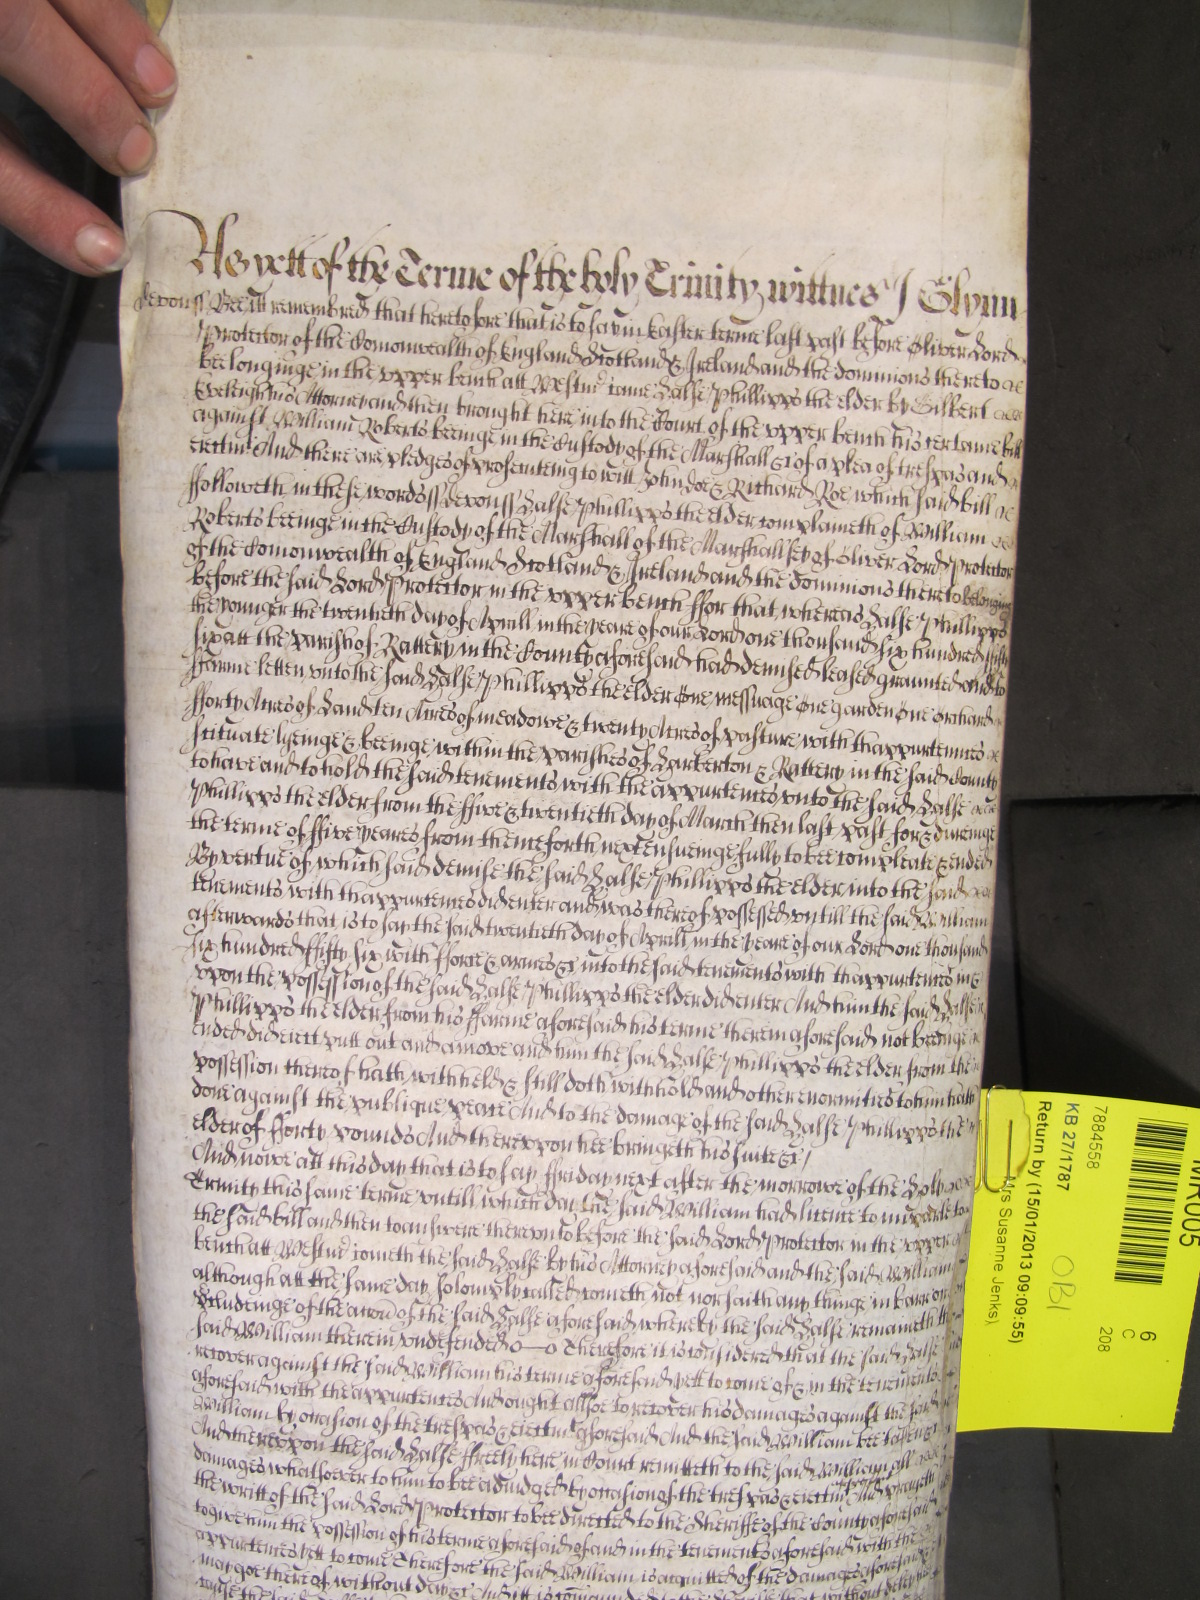 As yett of the Terme of the holy Trinity wittnes J Glynn
Devon ss Bee itt remembred that heretofore that is to say in Easter terme last past before Oliver Lord
Protector of the Comonwealth of England Scotland & Ireland and the dominions thereto
beelonginge in the upper bench att Westmr came Halse Phillipps the elder by Gilbert
Eveleigh his Attorney and then brought here into the Court of the upper bench his certaine bill
against William Roberts beeinge in the Custody of the Marshall &c of a plea of trespas and
eiectmt And there are pledges of prosecuteing to witt John Doe & Richard Roe which said bill
followeth in these words ss Devon ss Halse Phillipps the elder complaineth of William
Roberts beeinge in the Custody of the Marshall of the Marshallsey of Oliver Lord Protector
of the Comonwealth of England Scotland & Ireland and the dominions thereto belonging
before the said Lord Protector in the upper bench ffor that whereas Halse Phillipps
the younger the twentieth day of Aprill in the yeare of our Lord one thousand six hundred fifty
six att the parish of Rattery in the County aforesaid had demised leased graunted and to
ffarme letten unto the said Halse Phillipps the elder One messuage One garden One Orchard
fforty Acres of Land ten Acres of meadowe & twenty Acres of pasture with thappurtennces
scituate lyeinge & beeinge within the parishes of Harberton & Rattery in the said County
to have and to hold the said tenements with the appurtences unto the said Halse
Phillipps the elder from the ffive & twentieth day of March then last past for & dureinge
the terme of ffive yeares from thenceforth next ensueinge fully to bee compleate & ended
By vertue of which said demise the said Halse Phillipps the elder into the said
tenements with thappurtences did enter and was thereof possessed untill the said William
afterwards that is to say the said twentieth day of Aprill in the yeare of our Lord one thousand
six hundred ffifty six with fforce & armes &c into the said tenements with thappurtences in &
upon the possession of the said Halse Phillipps the elder did enter And him the said Halse
Phillipps the elder from his ffarme aforesaid his terme therein aforesaid not beeinge
ended did eiect putt out and amove and him the said Halse Phillipps the elder from the
possession thereof hath withheld & still doth withhold and other enormities to him hath
done against the publique peace And to the damage of the said Halse Phillipps the
elder of fforty pounds And thereupon hee bringeth his suite &c /
And nowe att this day that is to say ffriday next after the morrowe of the Holy
Trinity this same terme untill which day the said William had licence to imparle to
the said bill and then to answere thereunto before the said Lord Protector in the upper
bench att Westmr cometh the said Halse by his Attorney aforesaid and the said William
although att the same day solomply called cometh not nor saith any thinge in barr or
precludeinge of the accon of the said Halse aforesaid whereby the said Halse remaineth
said William therein undefended Therefore it is considered that the said Halse
recover against the said William his terme aforesaid yett to come of & in the tenements
aforesaid with the appurtences And ought allsoe to recover his damages against the said
William by occasion of the trespas & eiectmt aforesaid And the said William bee taken &c
And thereupon the said Halse ffreely here in Court remitteth to the said William all
damages whatsoever to him to bee adiudged by occasion of the trespas & eiectmt aforesaid And prayeth
the writt of the said Lord Protector to bee directed to the Sheriffe of the County aforesaid
to give him the possession of his terme aforesaid of and in the tenements aforesaid with the
appurtences yett to come Therefore the said William is acquitted of the damages aforesaid &
may goe thereof without day &c And itt is commanded to the Sheriffe that without delay
cause the said
MR005
6
C
208
7984558
KB 27/1787
OBI
Return by (15/01/2013 09:09:55)
Mrs Susanne Jenks)